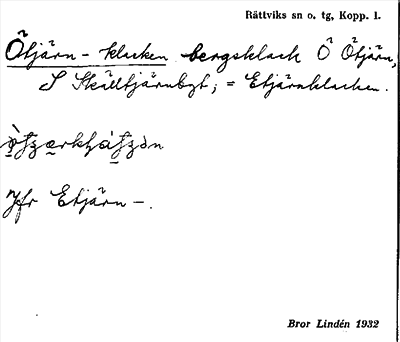 Rättviks sn o. tg, Kopp. l.
Ötjärn-klacken bergsklack Ö Ötjärn,
S Skälltjärnbgt; = Etjärnklacken.
Jfr Etjärn-.
Bror Lindén 1932